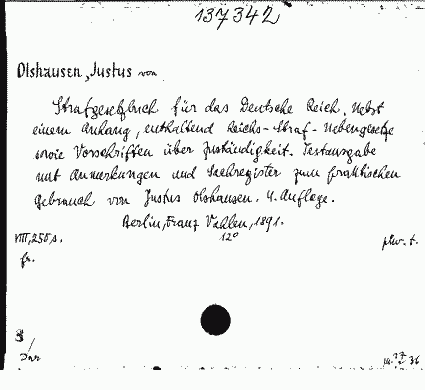 137342
Olshausen, Justus von
Strafgesetzbuch für das Deutsche Reich. Nebst
einem Anhang, enthaltend Reichs-Straf-Nebengesetze
sowie Vorschriften über Zuständigkeit. Textausgabe
mit Anmerkungen und Sachregister zum praktischen
Gebrauch von Justus Olshausen. 4. Auflage.
Berlin, Franz Vahlen, 1891.
VIII, 250, s. 12°
fr.